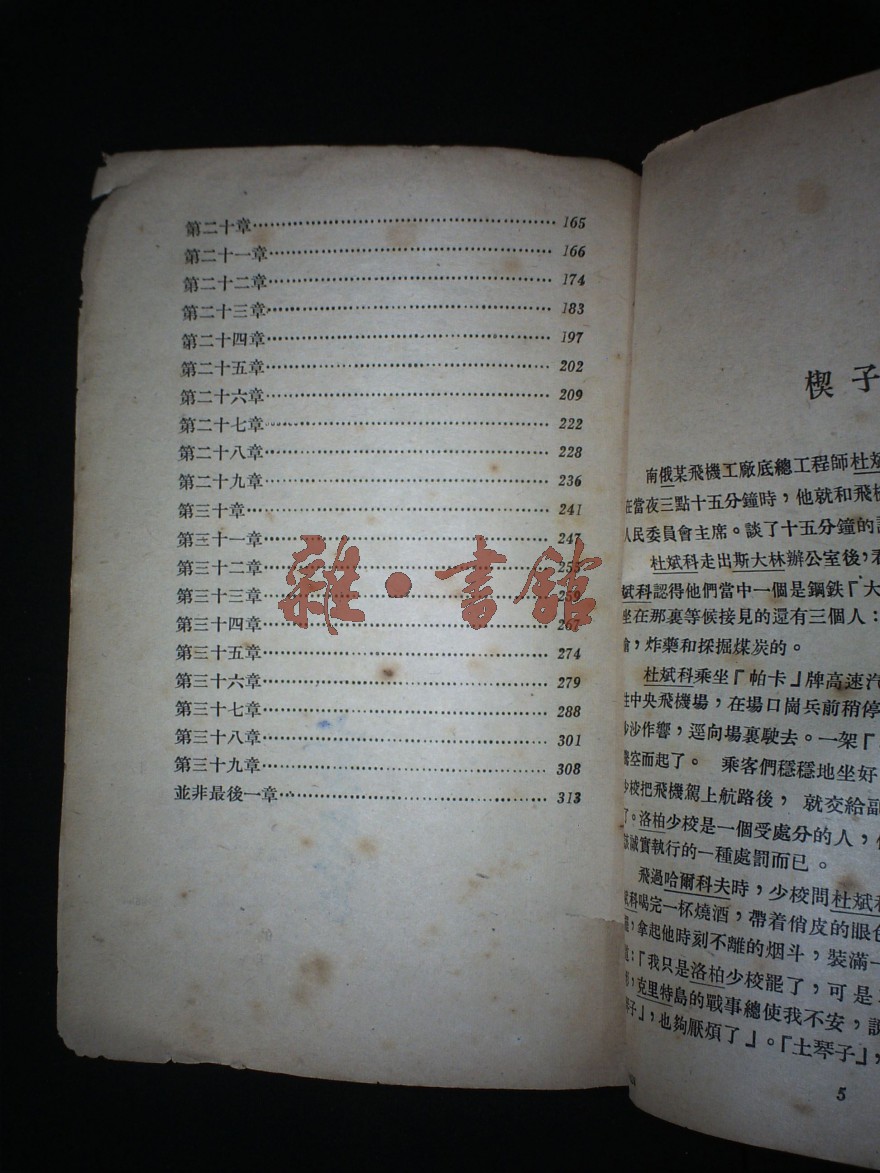 第二十章 165
第二十一章 166
第二十二章 174
第二十三章 183
第二十四章 197
第二十五章 202
第二十六章 209
第二十七章 222
第二十八章 228
第二十九章 236
第三十章 241
第三十一章 247
第三十二章 253
第三十三章 259
第三十四章 267
第三十五章 274
第三十六章 279
第三十七章 288
第三十八章 301
第三十九章 308
並非最後一章 313
雜·書館
楔子
南俄某飛機工廠底總工程師杜斌
在當夜三點十五分鐘時,他就和飛機
人民委員會主席。談了十五分鐘的
杜斌科走出斯大林辦公室後,
斌科認得他們當中一個是鋼鉄「大
坐在那裏等候接見的還有三個人:
,炸藥和採掘煤炭的。
杜斌科乘坐「帕卡」牌高速汽
往中央飛機場,在場口崗兵前稍停
沙作響,逕向場裏駛去。一架「
空而起了。乘客們穩穩地坐好
少校把飛機駕上航路後,就交給副
了。洛柏少校是一個受處分的人,
該誠實執行的一種處罰而已。
飛過哈爾科夫時,少校問杜斌科
斌科喝完一杯燒酒,帶着俏皮的眼色
,拿起他時刻不離的烟斗,裝滿一
道:「我只是洛柏少校罷了,可是
,克里特島的戰事總使我不安,
琴子」,也夠厭煩了」。「土琴子」,
5